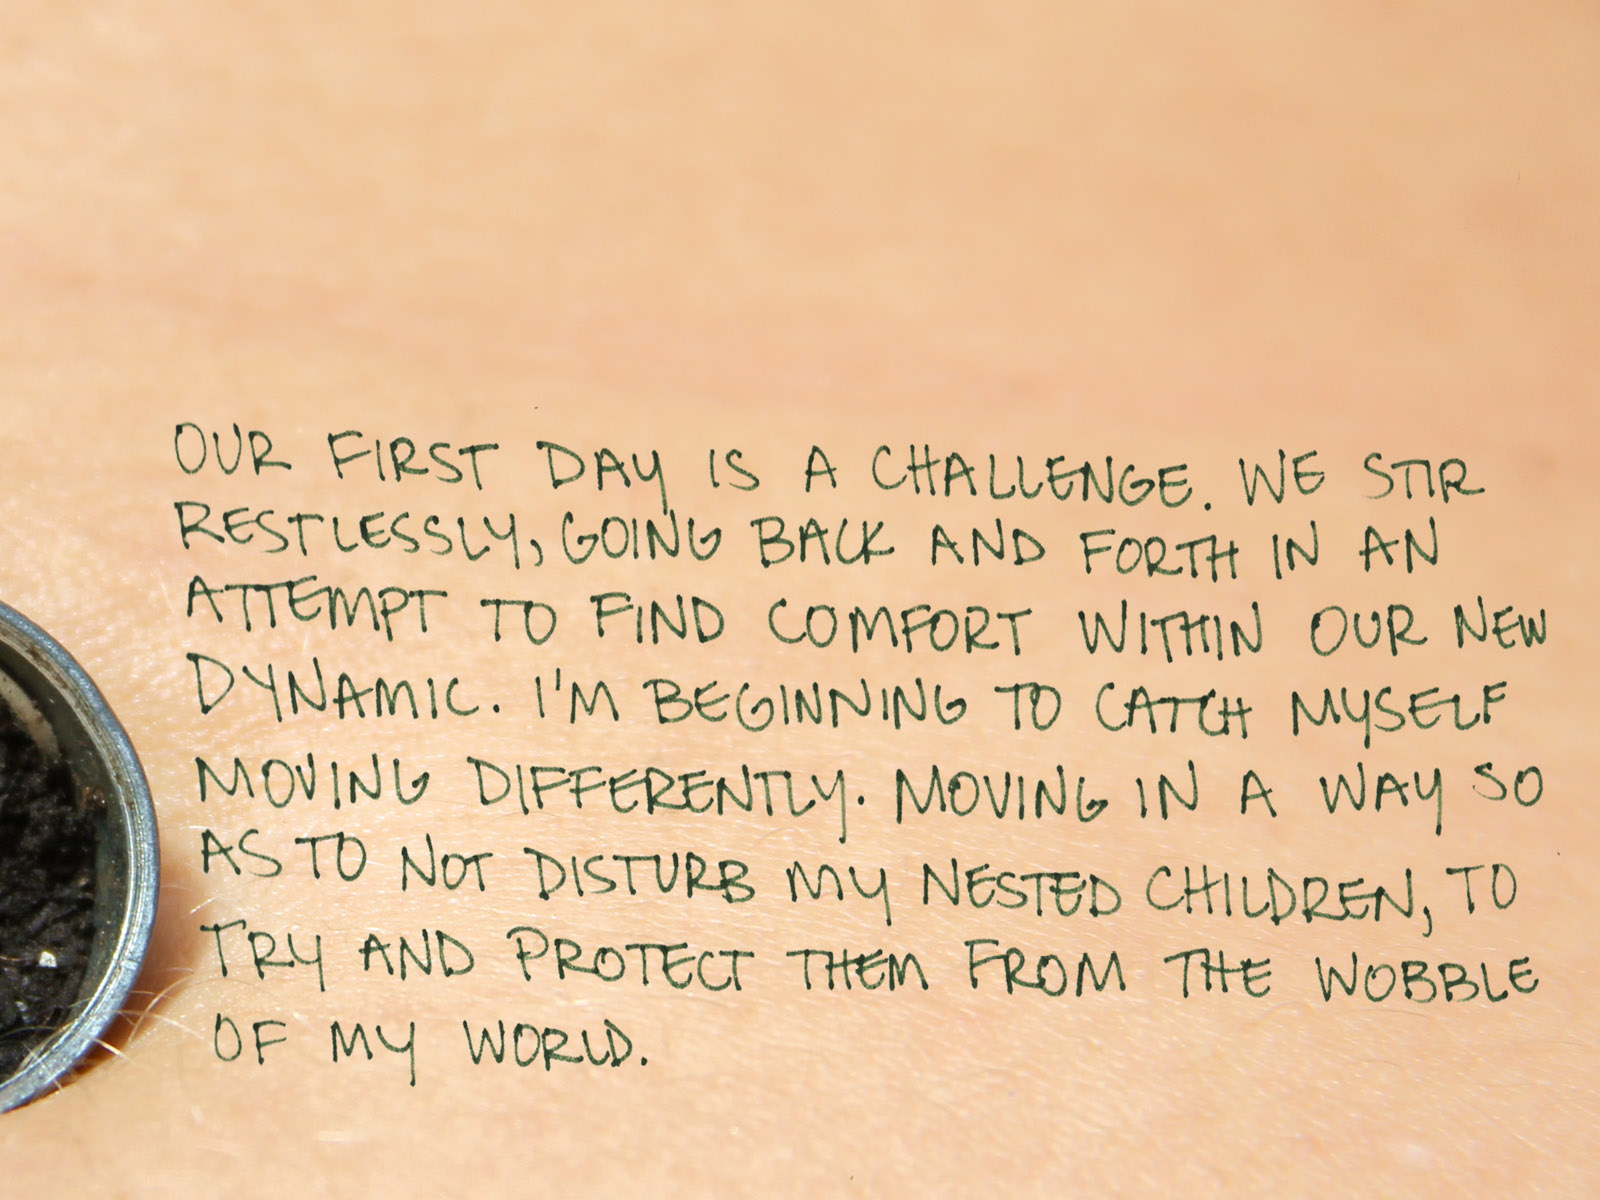 OUR FIRST DAY IS A CHALLENGE. WE STIR
RESTLESSLY, GOING BACK AND FORTH IN AN
ATTEMPT TO FIND COMFORT WITHIN OUR NEW
DYNAMIC. I'M BEGINNING TO CATCH MYSELF
MOVING DIFFERENTLY. MOVING IN A WAY SO
AS TO NOT DISTURB MY NESTED CHILDREN, TO
TRY AND PROTECT THEM FROM THE WOBBLE
OF MY WORLD.